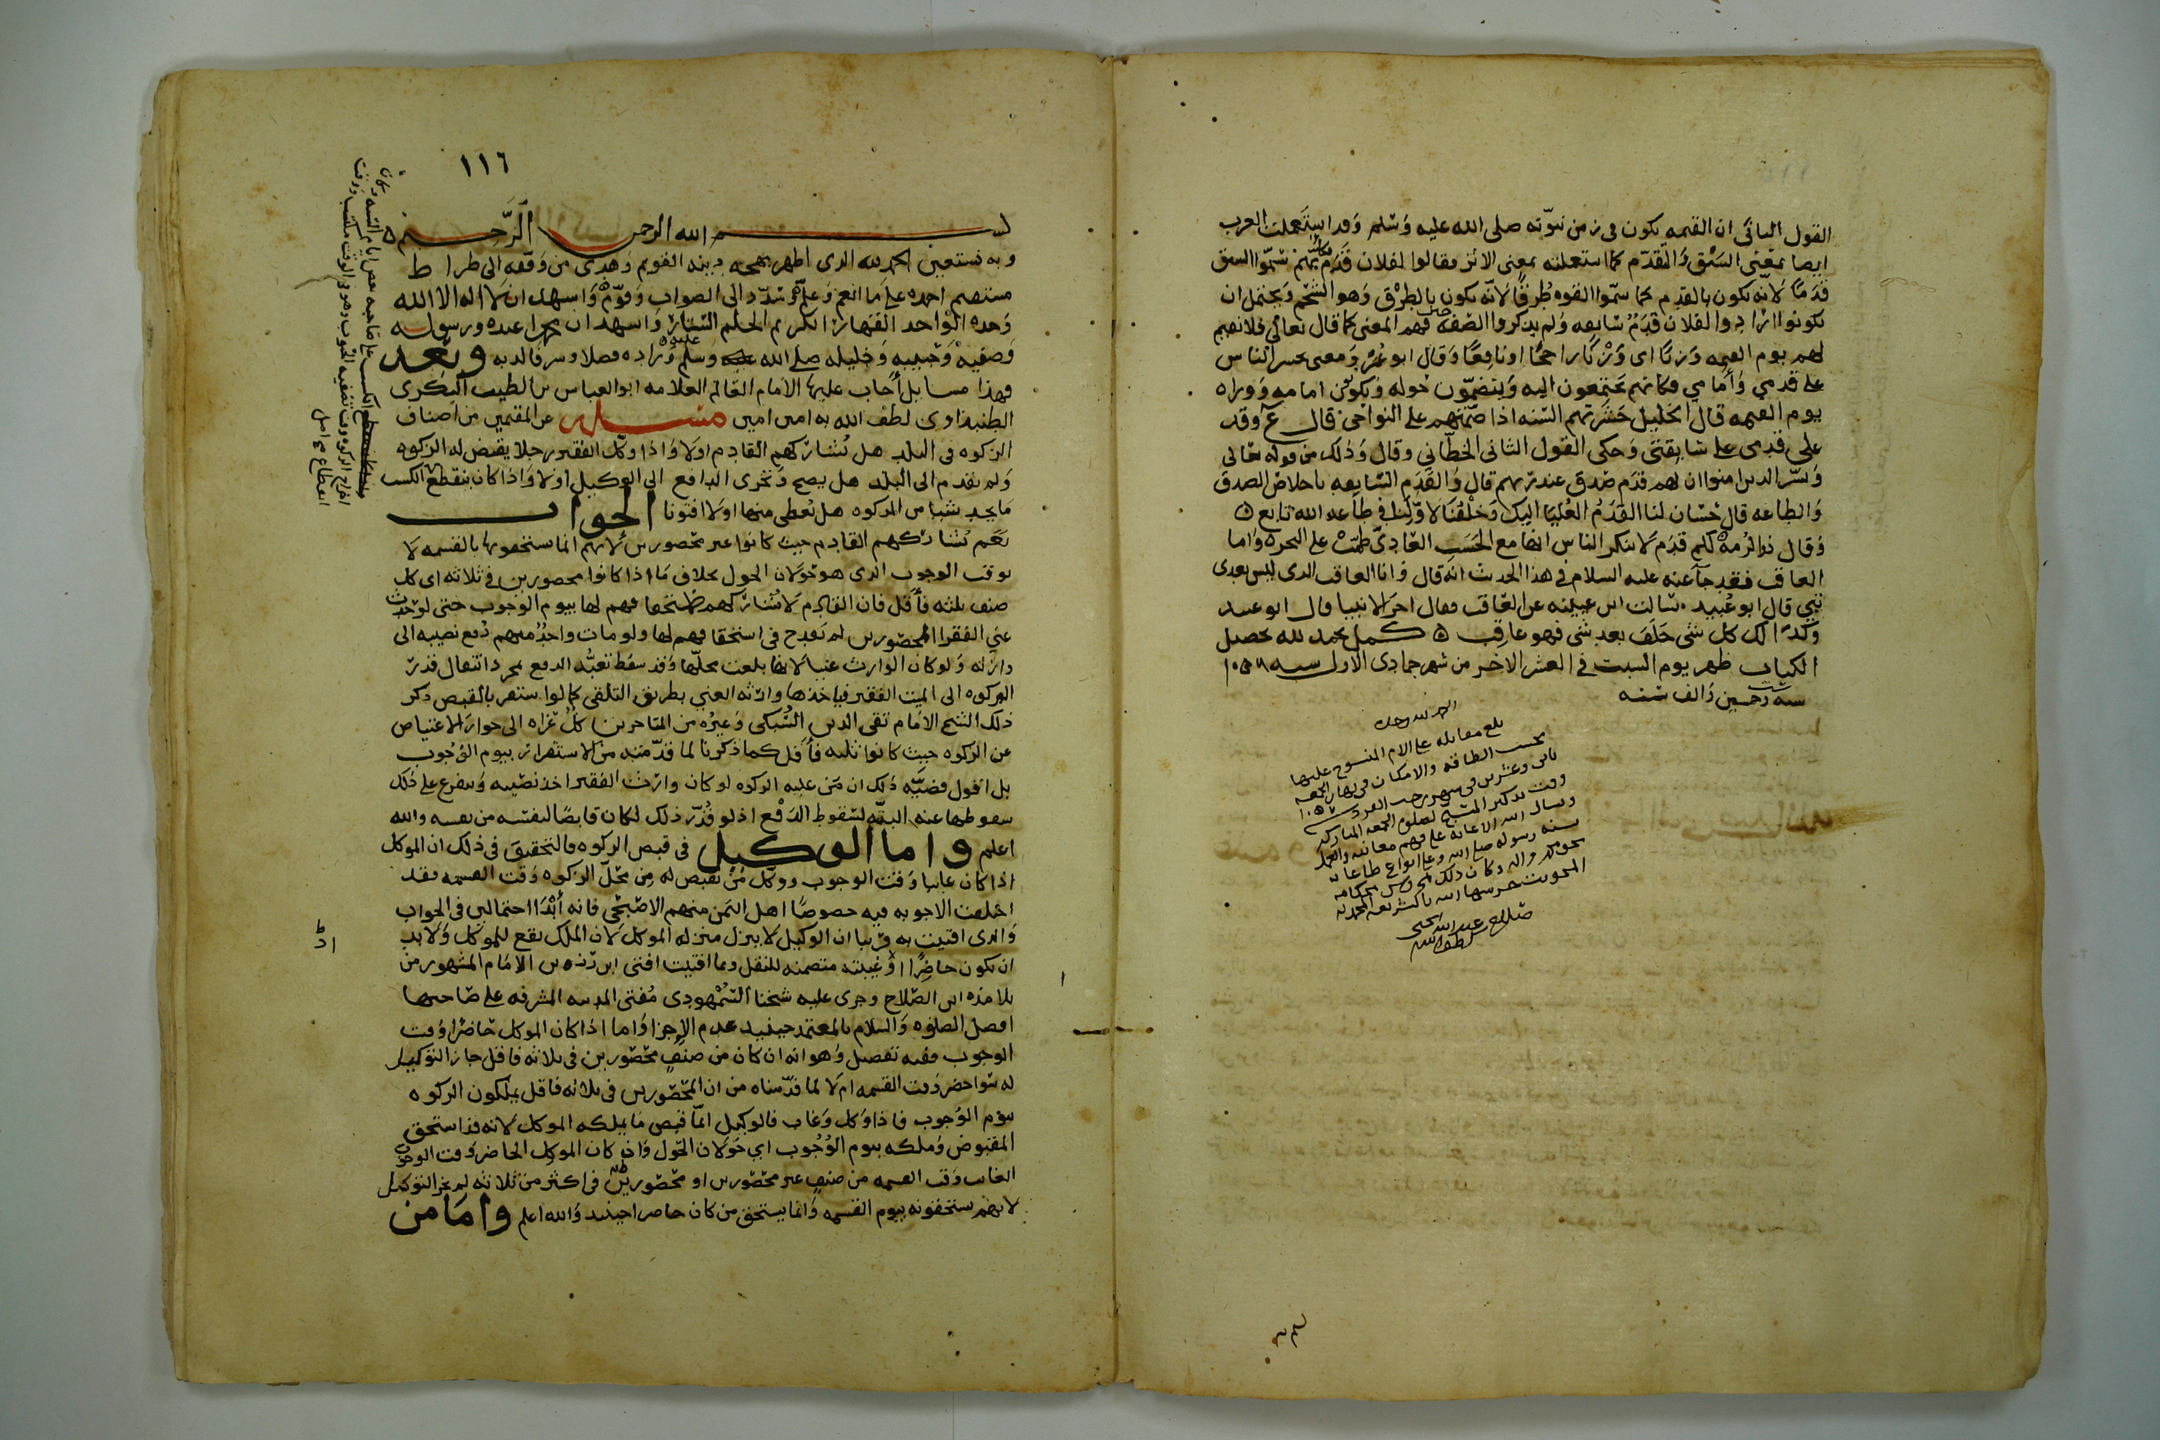 القول الثاني ان القيمه تكون في زمن نبوّته صلى الله عليه وسلم وقد استعملت العرب
ايضا بمعنى السَبْق والتقدّم كما استعلته بمعنى الاثر فقالوا لفلان قَدَم منهم سمّوا السبق
قدمًا لانه يكون بالقدم كما سمّوا القوه طُرقًا لانه يكون بالطرْق وهو الشحم ويحتمل ان
يكونوا ارادوا لفلان قَدَمٌ سابقه ولم يذكروا الصفه حين فهم المعنى كما قال تعالى فلا نقيم
لهم يوم القيمه وزنًا اى وزنًا راجحًا او نافعًا وقال ابو عُمَر ومعنى يحشر الناس
على قدمي وأمامي فكانهم يجتمعون اليه وينضمّون حوله ويكونون امامه ووراه
يوم القيمه قال الخليل حَشَرتهم السَنه اذا ضمّتهم على النواحى قال ع وقد
على قدمى على سابقتى وحكى القول الثانى الخطّابي وقال وذلك من قوله تعالى
وبشّر الذين امنوا ان لهم قَدَم صدق عند ربهم قال والقَدَم السابقه باخلاص الصدق
والطاعه قال حسّان لنا القَدَمُ العُليَا اليك وخلْفُنَا لاوّلنا فى طاعه الله تابع
وقال ذو الرُمهْ لكم قَدَم لا ينكر الناس انها مع الحَسَبِ العَادِىّ طمّتْ على البحر واما
العاقب فقد جآ عنه عليه السلام في هذا الحديث انه قال وانا العاقب الذى ليس بعدى
نبي قال ابو عُبيد سالت ابن عيينه عن العاقب فقال اخر الانبيا قال ابو عبيد
وكذالك كل شئ خَلَفَ بعد شئ فهو عاقب كمل بحمد لله تحصيل
الكتاب ظهر يوم السبت في العشر الاخر من شهر جمادى الاول سنه ١٠٥٨
وخمسين والف سنه
الحمد لله وحده
بلغ مقابله على الام المنسوخ عليها
بحسب الطاقه والامكان في نهار الجمعه
ثانى وعشرين فى شهر رجب الفرد
وقت تذكير المسبح لصلوه الجمعه المباركه
ونسال الله الاعانه على فهم معانيه والعمل
بسنه رسوله صلى الله وعلى انواع طاعاته
بحق محمد واله وكان ذلك بمحروس
المحويت حرسها الله بالشريعه المحمديه
صلاح عبد الله يحيى
لطف الله
١١٦
بسم الله الرحمن الرَّحيم
وبه نستعين الحمد لله الذى اظهر بهجه دينه القويم وهدى من وَفّقه الى طراط
مستقيم احمده على ما انعم وعلّم وسَدّد الى الصواب وفهّم واشهد ان لا اله الا الله
وَحده الوَاحد القَهار الكريم الحليم السَتّار واشهد ان محمدا عبده ورسوله
وَصفيهْ وَحبيبه وَخليله صلى الله عليه وسلم وزاده فضلا وشرفا لديه وبَعد
فهذا مسايل أجاب عليها الامام العالم العلامه ابو العباس بن الطيب البكرى
الطنبذاوى لطف الله به امين امين مَسله عن المقيمين من اصناف
الزكوه فى البلد هل تُشاركهم القادم اولا واذا وكّل الفقير رجلا يقبض له الزكوه
وَلم يقدم الى البلد هل يصح ويُجزى الدافع الى الوكيل اولا واذا كان ينقطع الكسب
ما يجد شيا من الزكوه هل يُعطى منها اولا افتونا الجواب
نَعَم تُشاركهم القادم حيث كانوا غير محصورين لانهم انما يستحقونها بالقسمه لا
بوقت الوجوب الذى هو حَولان الحول بخلاف ما اذا كانوا محصورين فى ثلاثه اى كل
صنف ثلثه فأقل فان القادم لا تُشاركهم لاستحقاقهم لها بيوم الوُجوب حتى لو حدث
غني الفقرا المحصورين لم يَقدح فى استحقاقهم لها ولو مات واحدٌ منهم دُفع نصيبه الى
وارثه ولو كان الوارث غنيا لانها بلغت محلّها وقد سقط تعبُّد الدفع بمجرد انتقال قدر
الزكوه الى الميت الفقير فياخذها وارثه الغني بطريق التلقى كما لو استقر بالقبض ذكر
ذلك الشيخ الامام تقي الدين السُّبكى وغيرُه من المتاخرين كلٌّ عَزاه الى جواز الاعتياض
عن الزكوه حيث كانوا ثلثه فأقل كما ذكرنا لما قدّمته من الاستقرار بيوم الوُجوب
بل اقول قضيّه ذلك ان مَن عليه الزكوه لو كان وارث الفقير اخذ نصيبه ويتفرع على ذلك
سقوطها عنه البته لسقوط الدَفع اذ لو قُدّر ذلك لكان قابضًا لنفسه من نفسه والله
اعلم واما الوكيل في قبض الزكوه فالتحقيق فى ذلك ان الموكل
اذا كان غايبا وقت الوجوب ووكّل مَنْ يقبض له مِن مَحلّ الزكوه وَقت القسمه فقد
اختلفت الاجوبه فيه خصوصًا اهل اليمَن منهم الاصْبَحى فانه أبْدَا احتمالين فى الجواب
والذى افتيت به قريبا ان الوكيل لا ينزل منزله الموكل لان الملك يقع للموكّل ولا بد
ان يكون حاضِرًا اوْ غيبته متضمنه للنقل وبما افتيت افتى ابن رزين الامام المشهور من
تلامذه ابن الصّلاح وجرى عليه شيخنا السُمْهودى مُفتي المدينه المشرفه على صاحبها
افضل الصلوه والسلام فالمعتمد حينيذ عدم الاجزا واما اذا كان الموكل حاضرا وقت
الوجوب ففيه تفصيل وَهو انه ان كان من صنف محصورين فى ثلاثه فاقل جاز التوكيل
له سوا حضر وقت القسمه ام لا لما قدّمناه من ان المحصورين فى ثلاثه فاقل يملكون الزكوه
بيوم الوُجوب فاذا وَكل وَغاب فالوكيل انما قبض ما يملكه الموكل لانه قد استحق
المقبوض وملكه بيوم الوُجُوب اي حَوَلان الحَول وَاذ كان الموكل الحاضر وقت الوجوب
الغايب وقت القسمه من صنف غير محصورين او محصورين فى اكثر من ثلاثه لم يجز التوكيل
لانهم يستحقونه بيوم القسمه وانما يستحق من كان حاضرا حينيذ والله اعلم وأمَا مَن